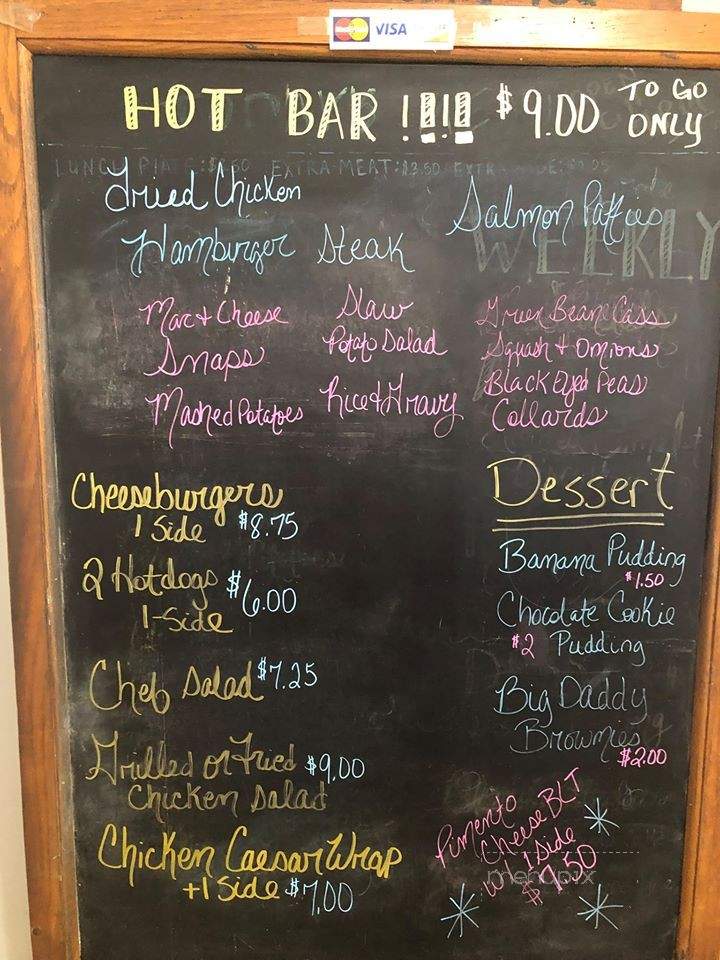 VISA
HOT BAR !!!! $9.00 TO GO ONLY
Fried Chicken
Salmon Patties
Hamburger Steak
WEEKLY
Mac + Cheese
Slaw
Green Bean Cass
Snaps
Potato Salad
Squash + Onions
Mashed Potatoes
Rice & Gravy
Black Eyed Peas
Collards
Cheeseburgers
1 Side $8.75
2 Hotdogs $6.00
1-Side
Chef Salad $7.25
Grilled or Fried $9.00
Chicken Salad
Chicken Caesar Wrap
+ 1 Side $7.00
Dessert
Banana Pudding
$1.50
Chocolate Cookie
$2 Pudding
Big Daddy
Brownies
$2.00
Pimento
Cheese BLT
w/ 1 Side
menupix